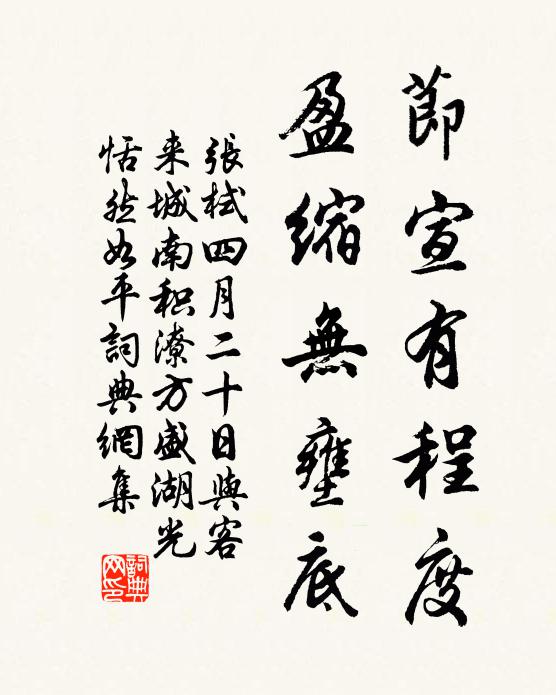 節宣有程度
盈縮無壅底
張栻四月二十日與客
来城南积潦方盛湖光
恬然如平詞典網集
詞典網印